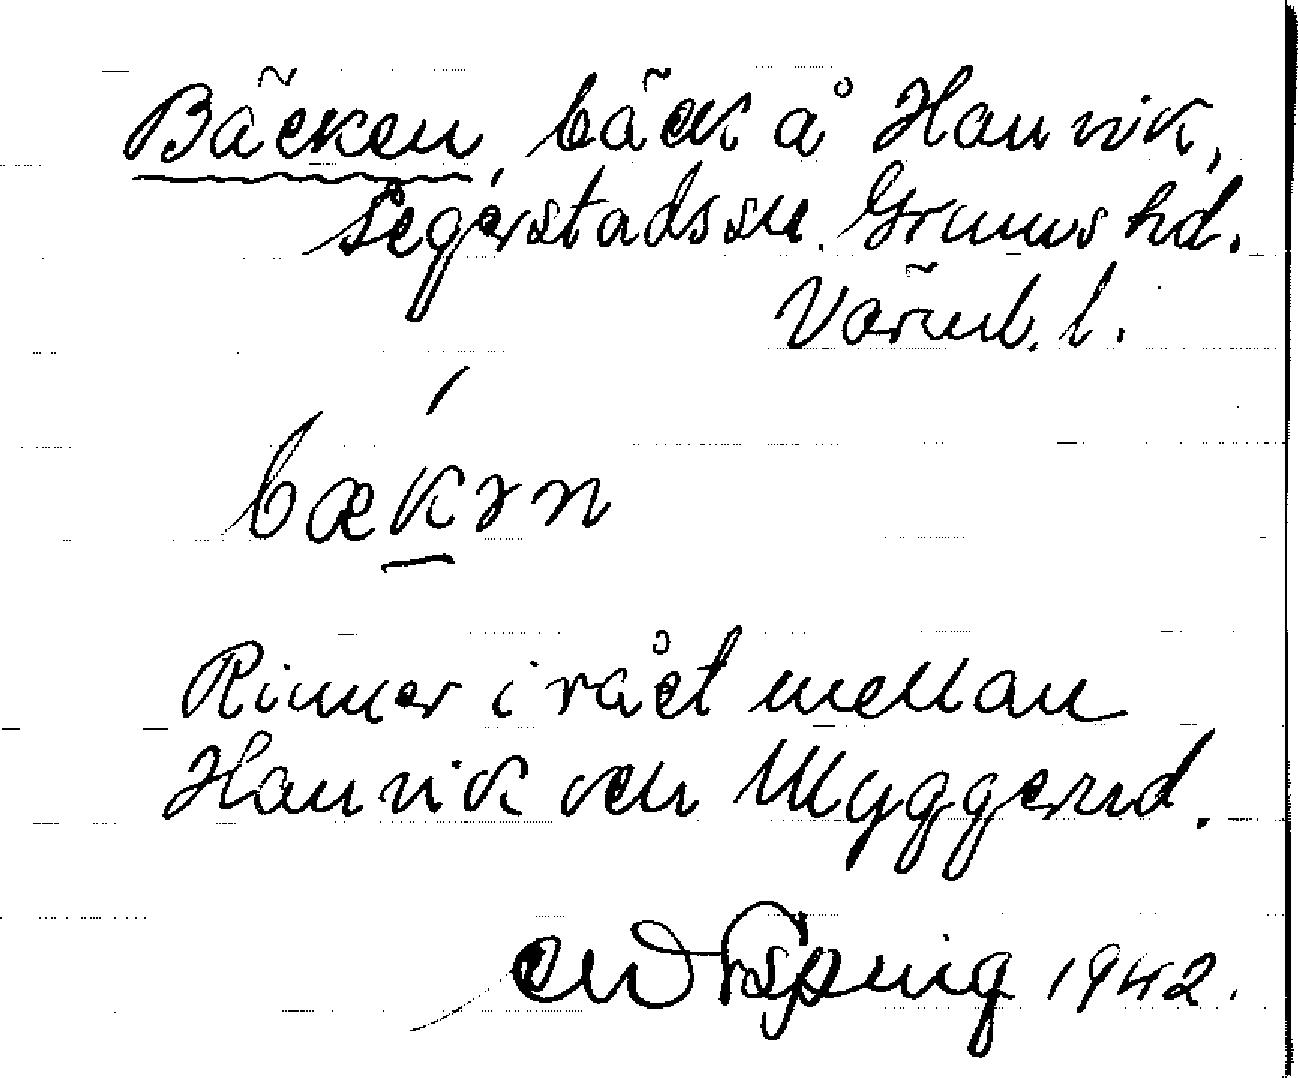 Bäcken, bäck å Hanvik,
Segerstads sn. Grums hd.
Värml. l.
bækən
Rinner i rået mellan
Hanvik och Myggerud.
1942.